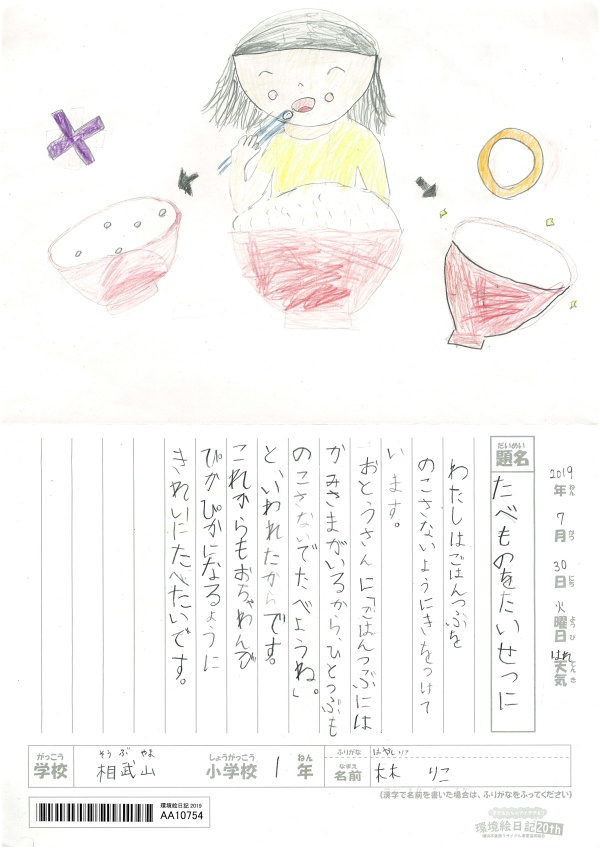 2019年 7月 30日 火曜日 はれ天気
ねん がつ にち ようび てんき
だいめい
題名
たべものをたいせつに
わたしはごはんつぶを
のこさないようにきをつけて
います。
おとうさんに「ごはんつぶには
かみさまがいるから、ひとつぶも
のこさないでたべようね」。
といわれたからです。
これからもおちゃわんが
ぴかぴかになるように
きれいにたべたいです。
がっこう
学校
そうぶやま
相武山
しょうがっこう
小学校
1年
ねん
ふりがな
はやし りこ
なまえ
名前
林 りこ
(漢字で名前を書いた場合は、ふりがなをふってください)
環境絵日記 2019
AA10754
環境絵日記20th